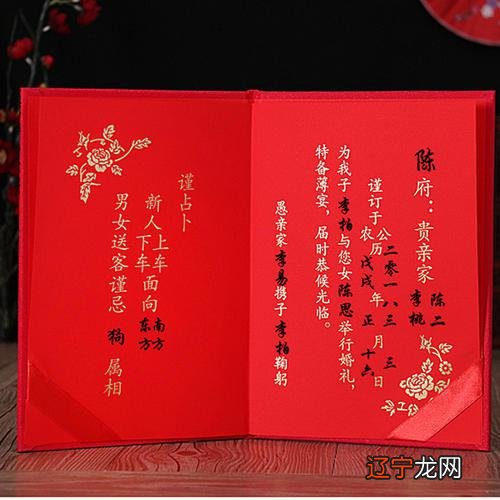 陈府：贵亲家 陈二 李桃
谨订于 公历 二零一八 年 三 月 三 日
农历 戊戌 年 正 月 十六 日
为我子李柏与您女陈思举行婚礼，
特备薄宴，届时恭候光临。
愚亲家李易携子李柏鞠躬
谨占卜
新人 上车 下车 面向 南方 东方
男女送客谨忌 狗 属相
辽宁龙网